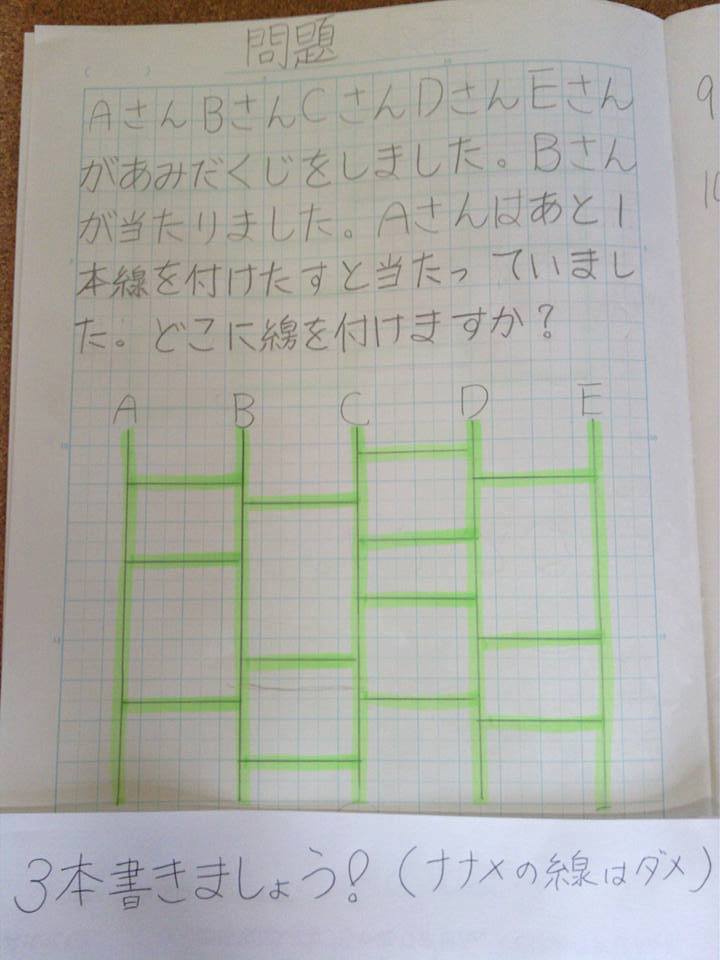 問題
AさんBさんCさんDさんEさん
があみだくじをしました。Bさん
が当たりました。Aさんはあと1
本線を付けたすと当たっていまし
た。どこに線を付けますか?
A B C D E
3本書きましょう!(ナナメの線はダメ)
9
10